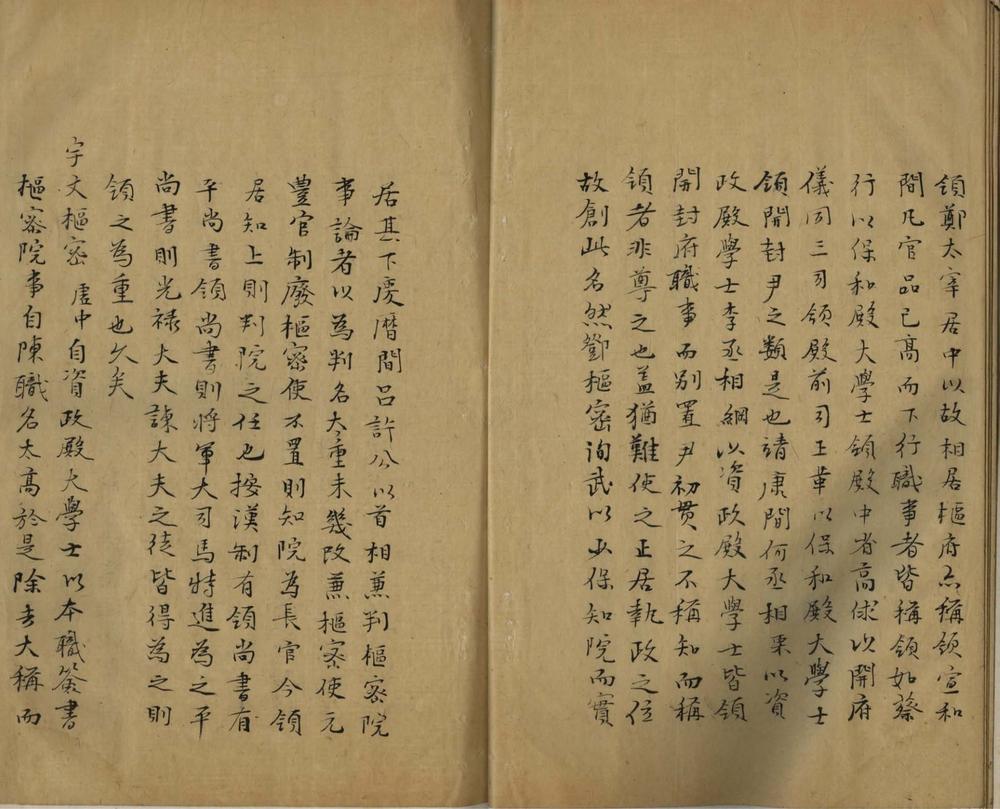 領鄭太宰居中以故相居樞府亦稱領宣和
間凡官品已高而下行職事者皆稱領如蔡
行以保和殿大學士領殿中省高俅以開府
儀同三司領殿前司王革以保和殿大學士
領開封尹之類是也諸康間何丞相㮚以資
政殿學士李丞相綱以資政殿大學士皆領
開封府職事而別置尹初貫之不稱知而稱
領者非尊之也蓋猶難使之正居執政之位
故創此名然鄧樞密洵武以少保知院而實
居其下慶曆間呂許公以首相兼判樞密院
事論者以為判名太重未幾改兼樞密使元
豐官制廢樞密使不置則知院為長官今領
居知上則判院之任也按漢制有領尚書有
平尚書領尚書則將軍大司馬特進為之平
尚書則光祿大夫諫大夫之徒皆得為之則
領之為重也久矣
宇文樞密虛中自資政殿大學士以本職簽書
樞密院事自陳職名太高於是除去大稱而